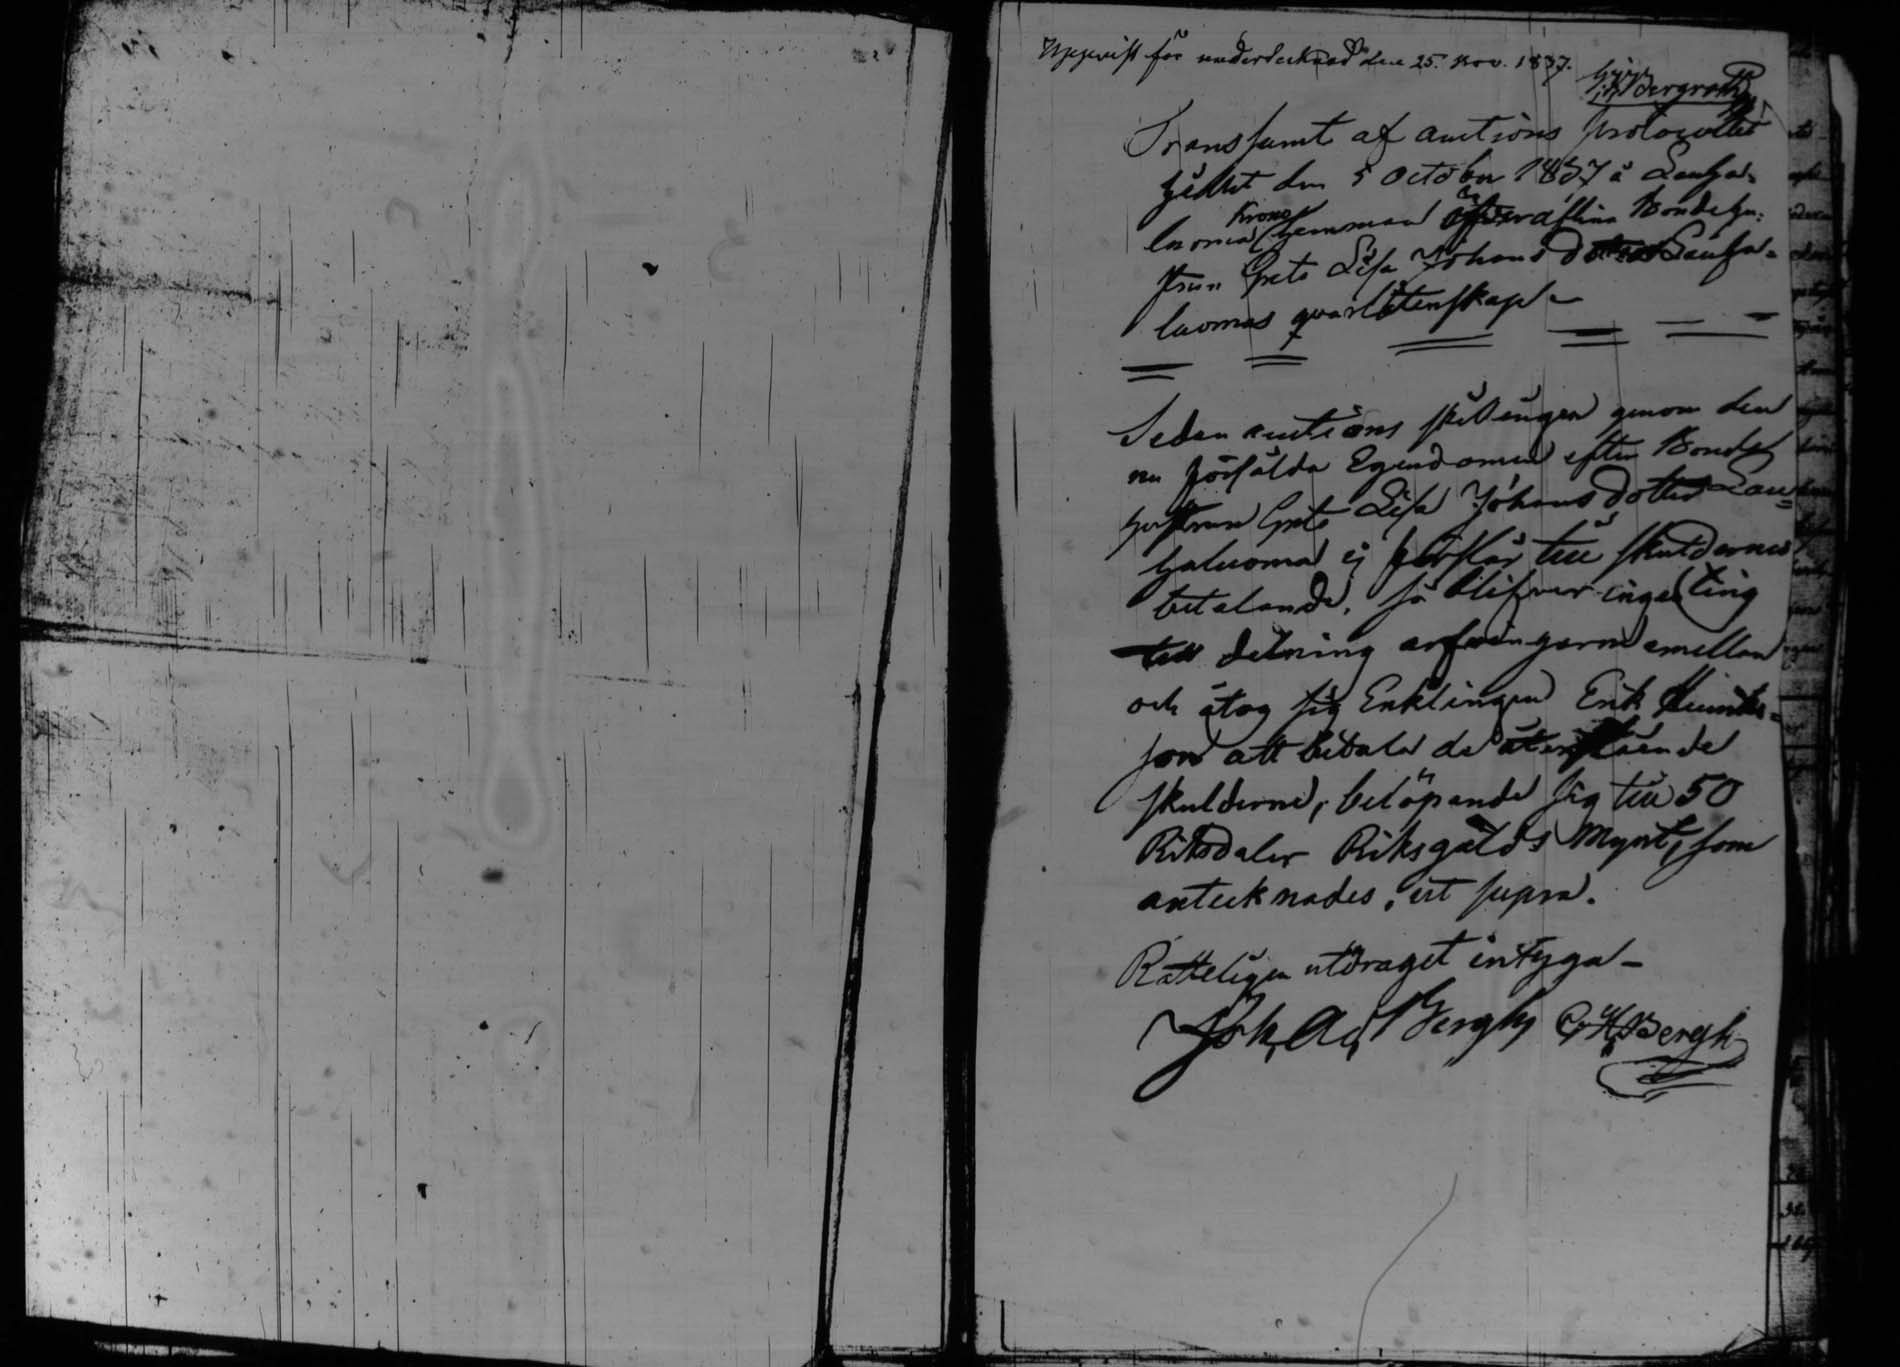 Uppvist för undertecknad den 25. Nov. 1837.
Bergroth
Transsumt af auctions protocollet
hållet den 5 October 1837 å Lauha-
luoma Krono hemman öfver aflidna Bondehu-
strun Greta Lisa Johansdotter Lauha-
luomas qvarlåtenskap –
Sedan auctions skillingen genom den
nu försålda Egendomen efter Bonde
hustrun Greta Lisa Johansdotter Lau-
haluoma ej förslår till skuldernes
betalande, så blifver ingenting
till delning arfvingarne emellan
och åtog sig Enklingen Erik
son att betala de återstående
skulderne, belöpande sig till 50
Riksdaler Riksgälds Mynt, som
antecknades, ut supra.
Rätteligen utdraget intyga –
Joh. Ad. Bergh C. H. Bergh